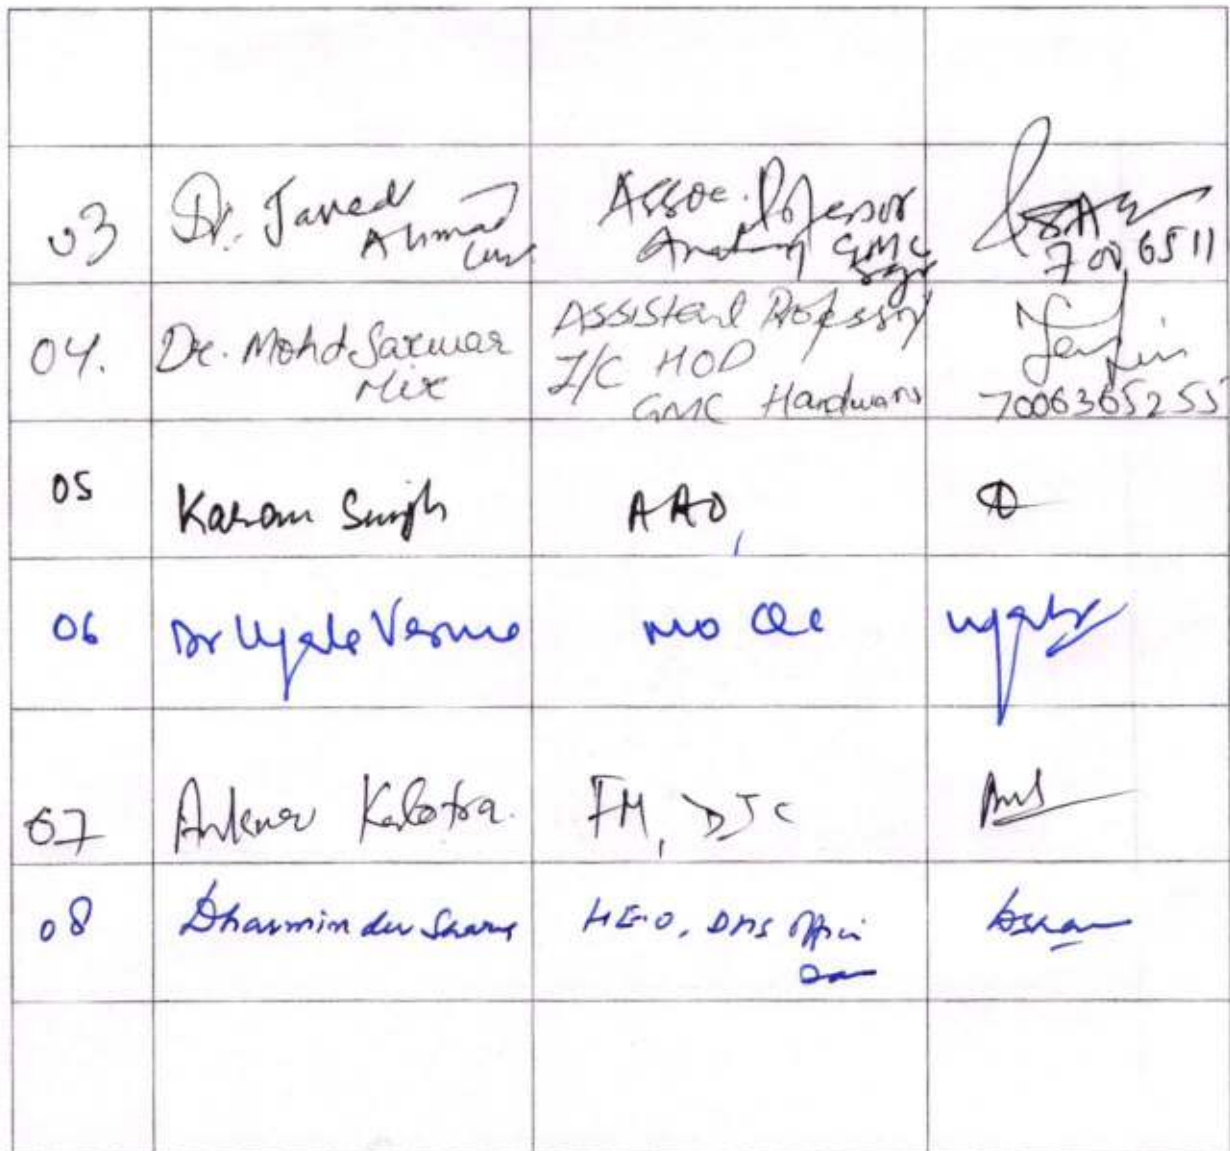 03 Dr. Javed Assoc. Professor
Ahmad Anatomy GMC
7006511
04. Dr. Mohd Sarwar Assistant Professor
Mir I/C HOD
GMC Handwara 7006365255
05 Karan Singh AAO,
06 Dr Ujala Verma MO
07 Ankur Kalotra. FM, DJC
08 Dharminder HEO, DHS Office